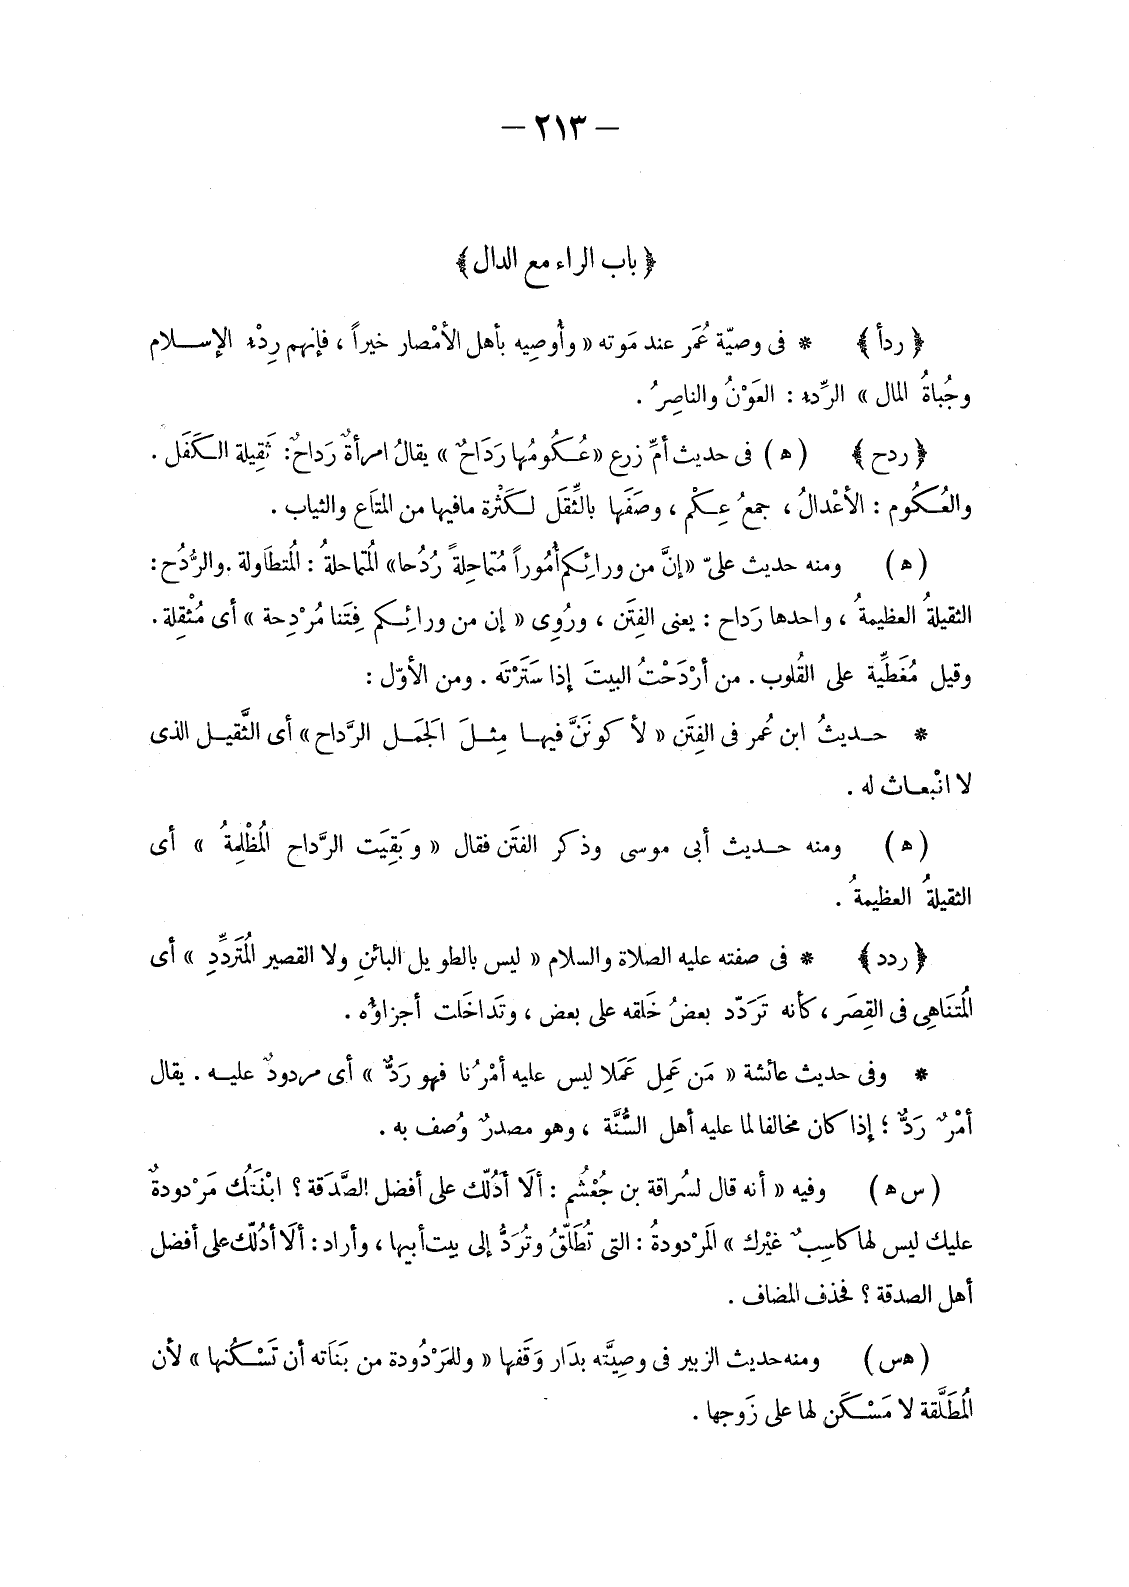 — ٢١٣ —
﴿ باب الراء مع الدال ﴾
﴿ ردأ ﴾ * فى وصيّة عُمَر عند مَوته « وأُوصِيه بأهل الأمْصار خيراً ، فإنهم رِدْء الإســلام
وجُباةُ المال » الرِّدء : العَوْنُ والناصِرُ .
﴿ ردح ﴾ ( ه ) فى حديث أمِّ زرع « عُـكُومُها رَدَاحٌ » يقالُ امرأةٌ رَداحٌ : ثَقِيلة الـكَفَل .
والعُـكُوم : الأعْدالُ ، جمعُ عِـكْم ، وصَفَها بالثِّقَل لـكَثْرة مافيها من المتَاع والثياب .
( ه ) ومنه حديث علىّ « إنَّ من ورائِـكم أُمُوراً مُتماحِلةً رُدُحا » المُتماحلةُ : المُتطَاولة . والرُّدُح :
الثقيلةُ العظيمةُ ، واحدها رَداح : يعنى الفِتَن ، ورُوِى « إن من ورائِـكم فِتَنا مُرْدِحة » أى مُثْقِلة .
وقيل مُغَطِّية على القُلوب . من أرْدَحْتُ البيتَ إذا سَتَرْتَه . ومن الأوّل :
* حـديثُ ابن عُمر فى الفِتَن « لأكونَنَّ فيهـا مِثـلَ الجَمَـل الرَّداح » أى الثَّقيـل الذى
لا انْبعـاث له .
( ه ) ومنه حـديث أبى موسى وذكر الفتَن فقال « وبَقِيَت الرَّداح المُظْلِمةُ » أى
الثقيلةُ العظيمةُ .
﴿ ردد ﴾ * فى صفته عليه الصلاة والسلام « ليس بالطويل البائنِ ولا القصير المُتَردِّدِ » أى
المُتنَاهِى فى القِصَر ، كأنه تَرَدّد بعضُ خَلقه على بعض ، وتَداخَلت أجزاؤُه .
* وفى حديث عائشة « مَن عَمِل عَمَلا ليس عليه أمْرُنا فهو رَدٌّ » أى مردودٌ عليـه . يقال
أمْرٌ رَدٌّ ؛ إذا كان مخالفا لما عليه أهل السُّنَّة ، وهو مصدرٌ وُصف به .
( س ه ) وفيه « أنه قال لسُراقة بن جُعْشُم : ألَا أدُلّك على أفضل الصَّدَقة ؟ ابْنَتُك مَرْدودةٌ
عليك ليس لها كاسِبٌ غيْرك » المَرْدودةُ : التى تُطَلّقُ وتُرَدُّ إلى بيت أبيها ، وأراد : ألَا أدُلّك على أفضل
أهل الصدقة ؟ فحذف المضاف .
( ه س ) ومنه حديث الزبير فى وصِيَّته بدَار وَقَفها « وللمَرْدُودة من بَنَاته أن تَسْـكُنها » لأن
المُطَلَّقة لا مَسْـكَن لها على زَوجها .